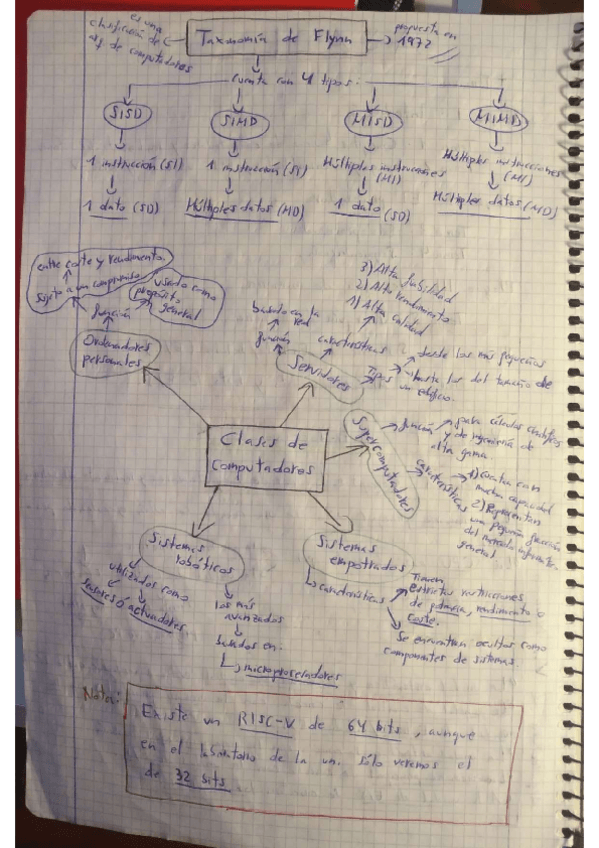 es una
clasificación de
de computadores
Taxonomía de Flynn
propuesta en
1972
cuenta con 4 tipos.
SISD
SIMD
MISD
MIMD
1 instrucción (SI)
1 instrucción (SI)
Múltiples instrucciones
(MI)
Múltiples instrucciones
(MI)
1 dato (SD)
Múltiples datos (MD)
1 dato (SD)
Múltiples datos (MD)
entre coste y rendimiento.
sujeto a un compromiso
usado como
propósito
general
función
Ordenadores
personales
basado en la
red
función
características
3) Alta fiabilidad
2) Alto rendimiento
1) Alta calidad
Servidores
Tipos
desde los más pequeños
hasta los del tamaño de
un edificio.
Supercomputadores
función
para cálculos científicos
y de ingeniería de
alta gama
características
1) Cuentan con
mucha capacidad
2) Representan
una pequeña fracción
del mercado
general
Clases de
Computadores
Sistemas
robóticos
utilizados como
sensores o actuadores
los más
avanzados
basados en:
microprocesadores
Sistemas
empotrados
características
Tienen
estrictas restricciones
de potencia, rendimiento o
coste.
Se encuentran ocultos como
componentes de sistemas.
Nota:
Existe un RISC-V de 64 bits, aunque
en el laboratorio de la un. sólo veremos el
de 32 bits